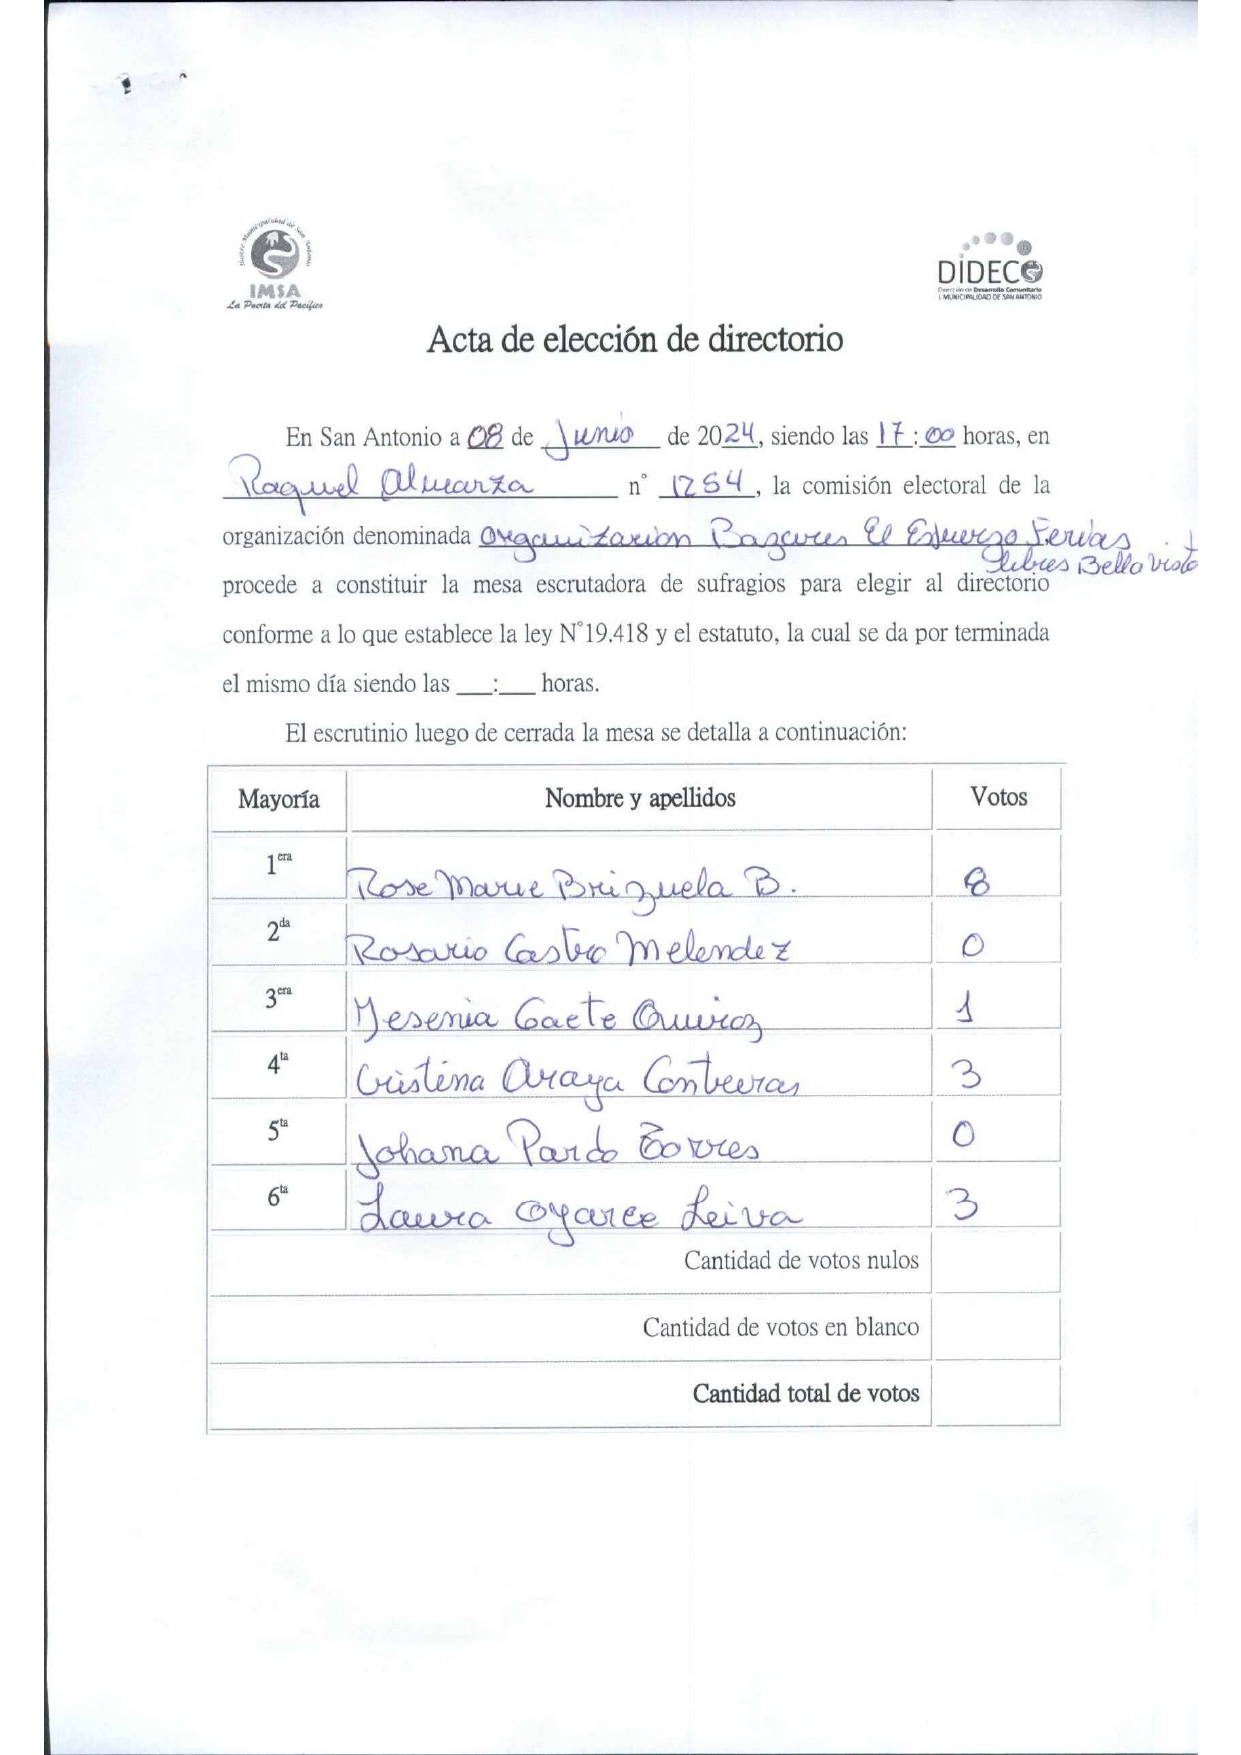 Ilustre Municipalidad de San Antonio
IMSA
La Puerta del Pacífico
DIDECO
Dirección de Desarrollo Comunitario
I. MUNICIPALIDAD DE SAN ANTONIO
Acta de elección de directorio
En San Antonio a 08 de Junio de 2024, siendo las 17:00 horas, en
Raquel Almarza n° 1254, la comisión electoral de la
organización denominada Organización Bazares El Esfuerzo Ferias
libres Bella Vista
procede a constituir la mesa escrutadora de sufragios para elegir al directorio
conforme a lo que establece la ley N°19.418 y el estatuto, la cual se da por terminada
el mismo día siendo las ___:___ horas.
El escrutinio luego de cerrada la mesa se detalla a continuación:
Mayoría Nombre y apellidos Votos
1era Rose Marie Brizuela B. 8
2da Rosario Castro Melendez 0
3era Yesenia Gaete Quiroz 1
4ta Cristina Araya Contreras 3
5ta Johana Pardo Torres 0
6ta Laura Oyarce Leiva 3
Cantidad de votos nulos
Cantidad de votos en blanco
Cantidad total de votos